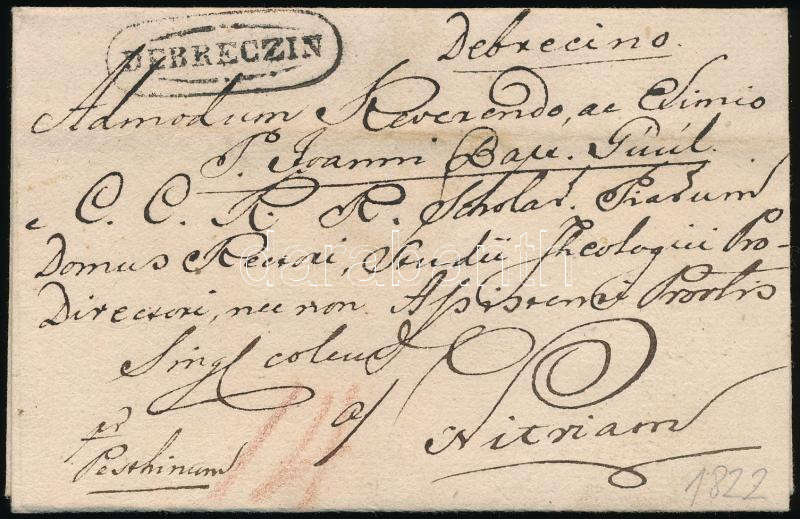 DEBRECZIN
Debrecino.
Admodum Reverendo, ac Eximio
P. Joanni Bapt. Guúl.
e C. C. R. R. Scholar. Piarum
Domus Rectori, Studii Theologici Pro-
Directori, nec non Assistenti Provlis
Singl colend
a/ Nitriam
pr
Pesthinum
1822
darabanth